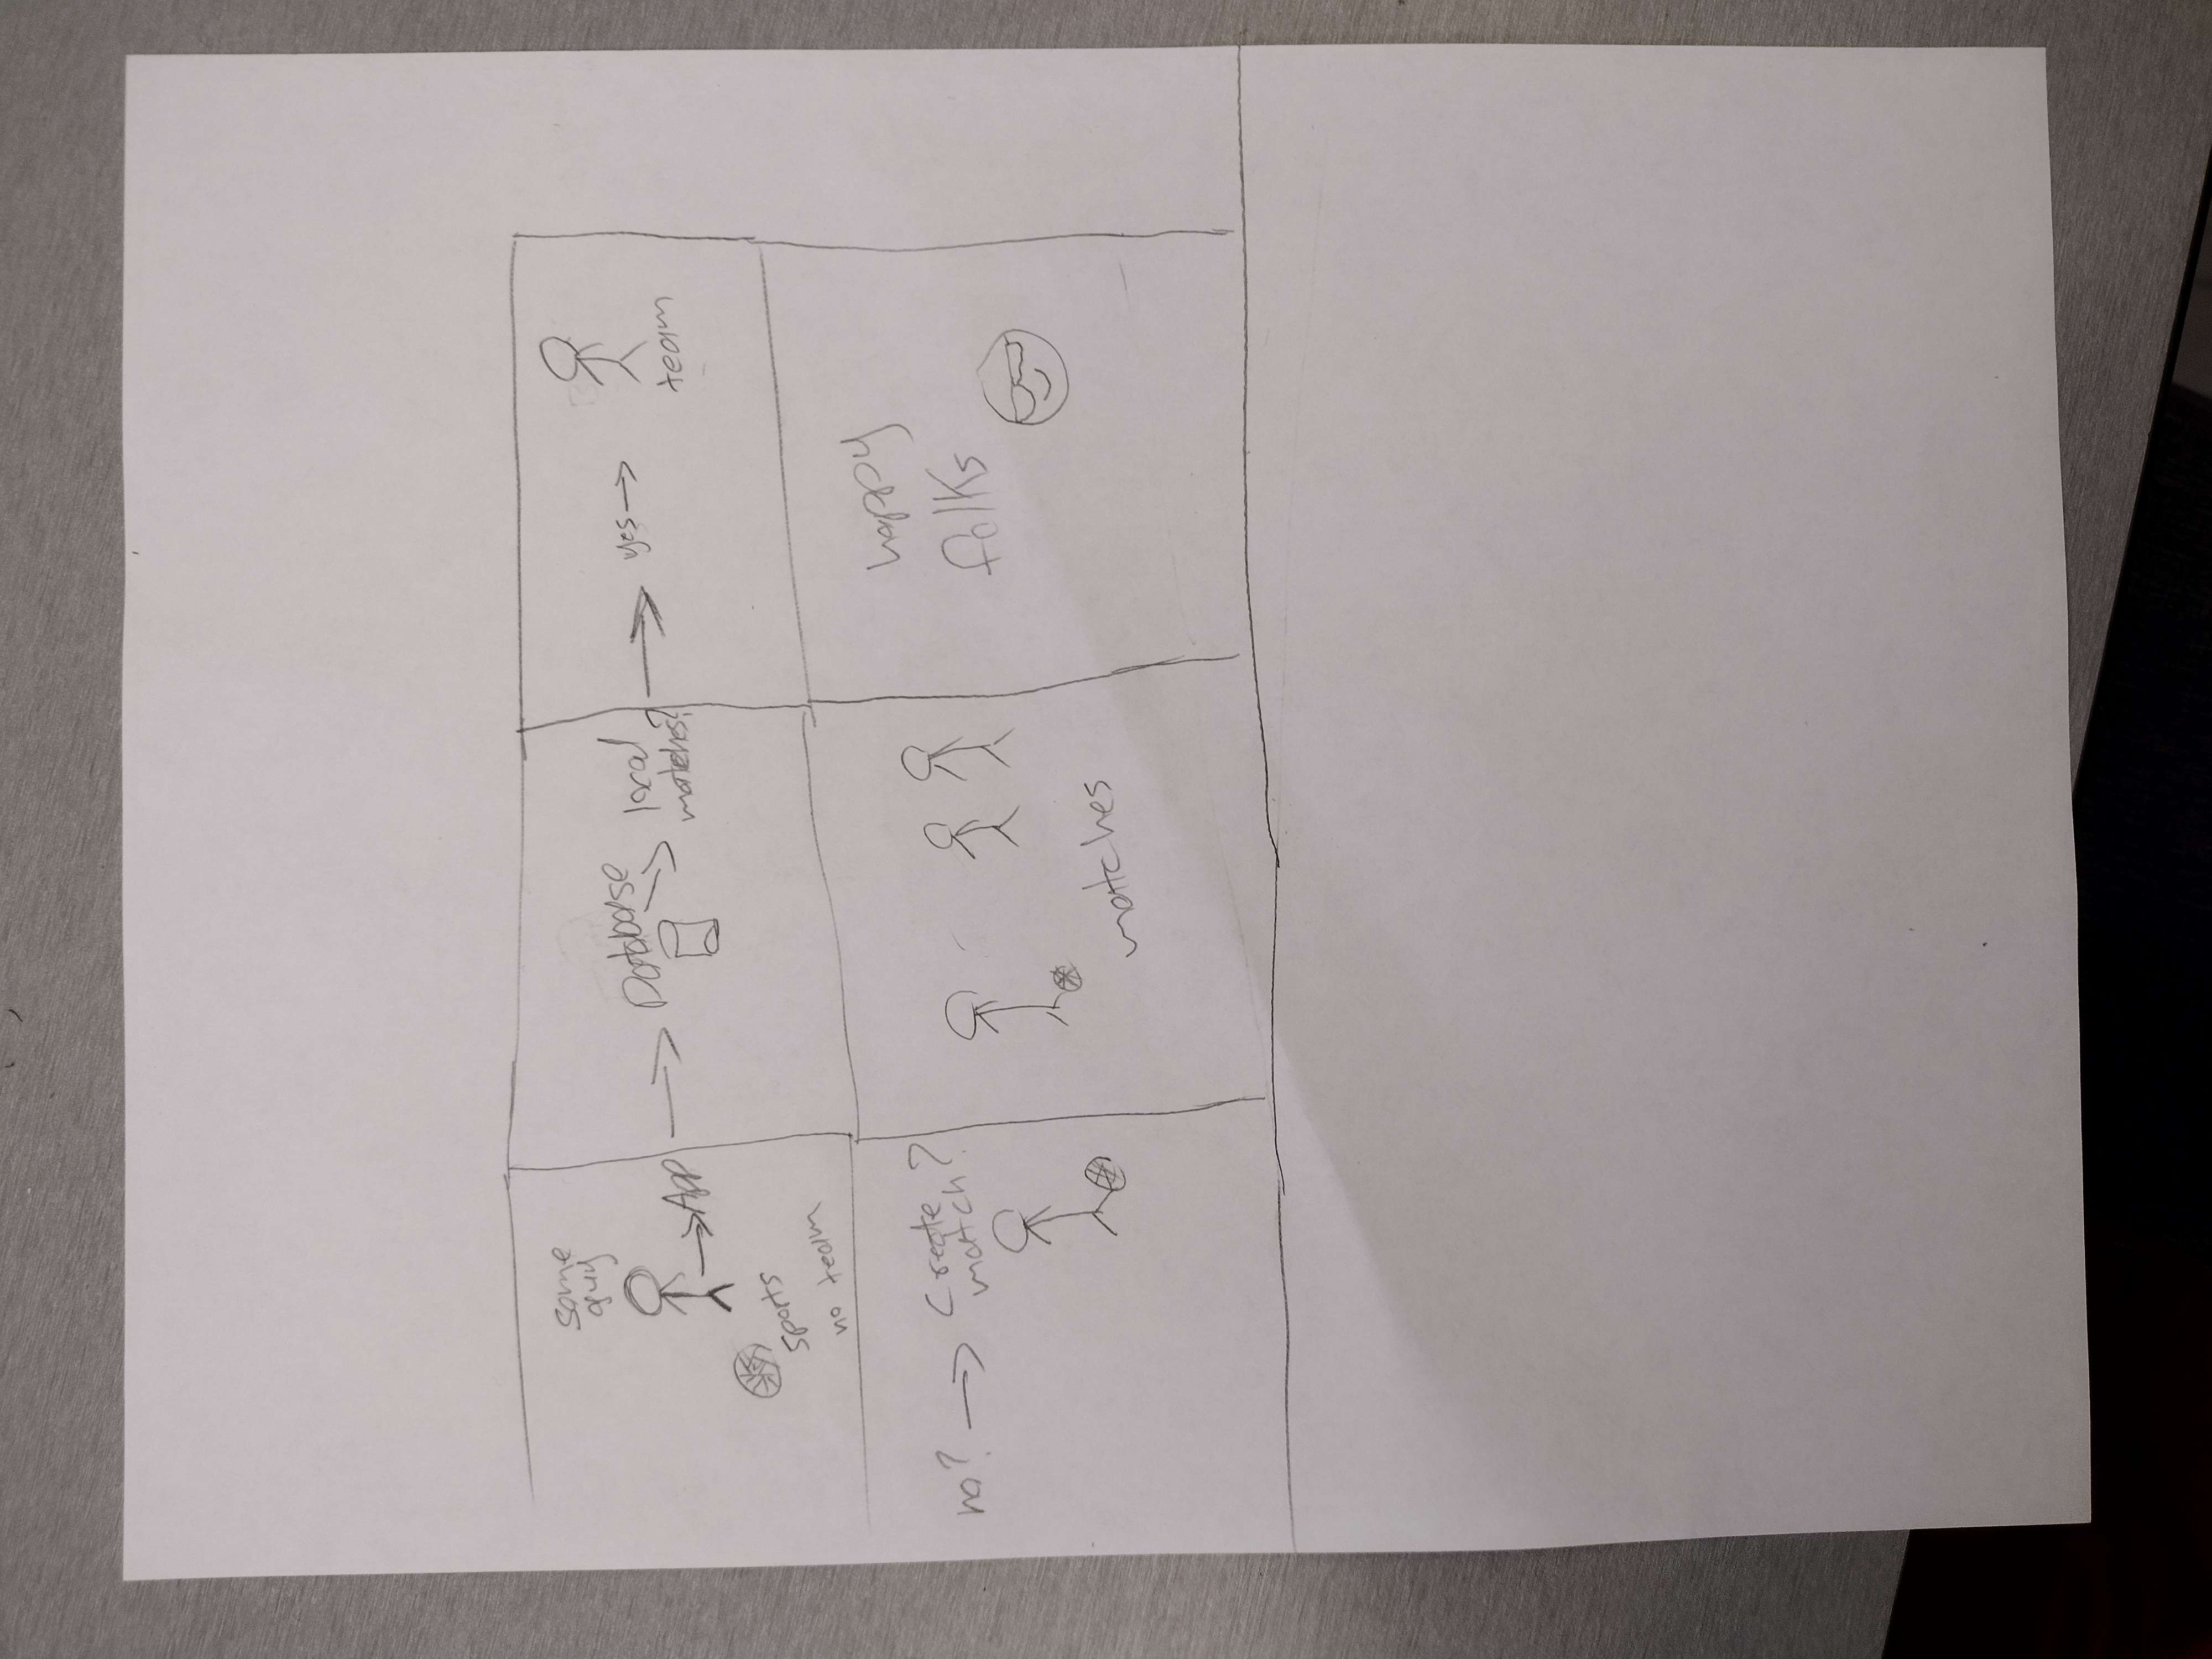 some
guy
App
sports
no team
Database
local
matches?
yes
team
no?
create
match?
matches
happy
folks